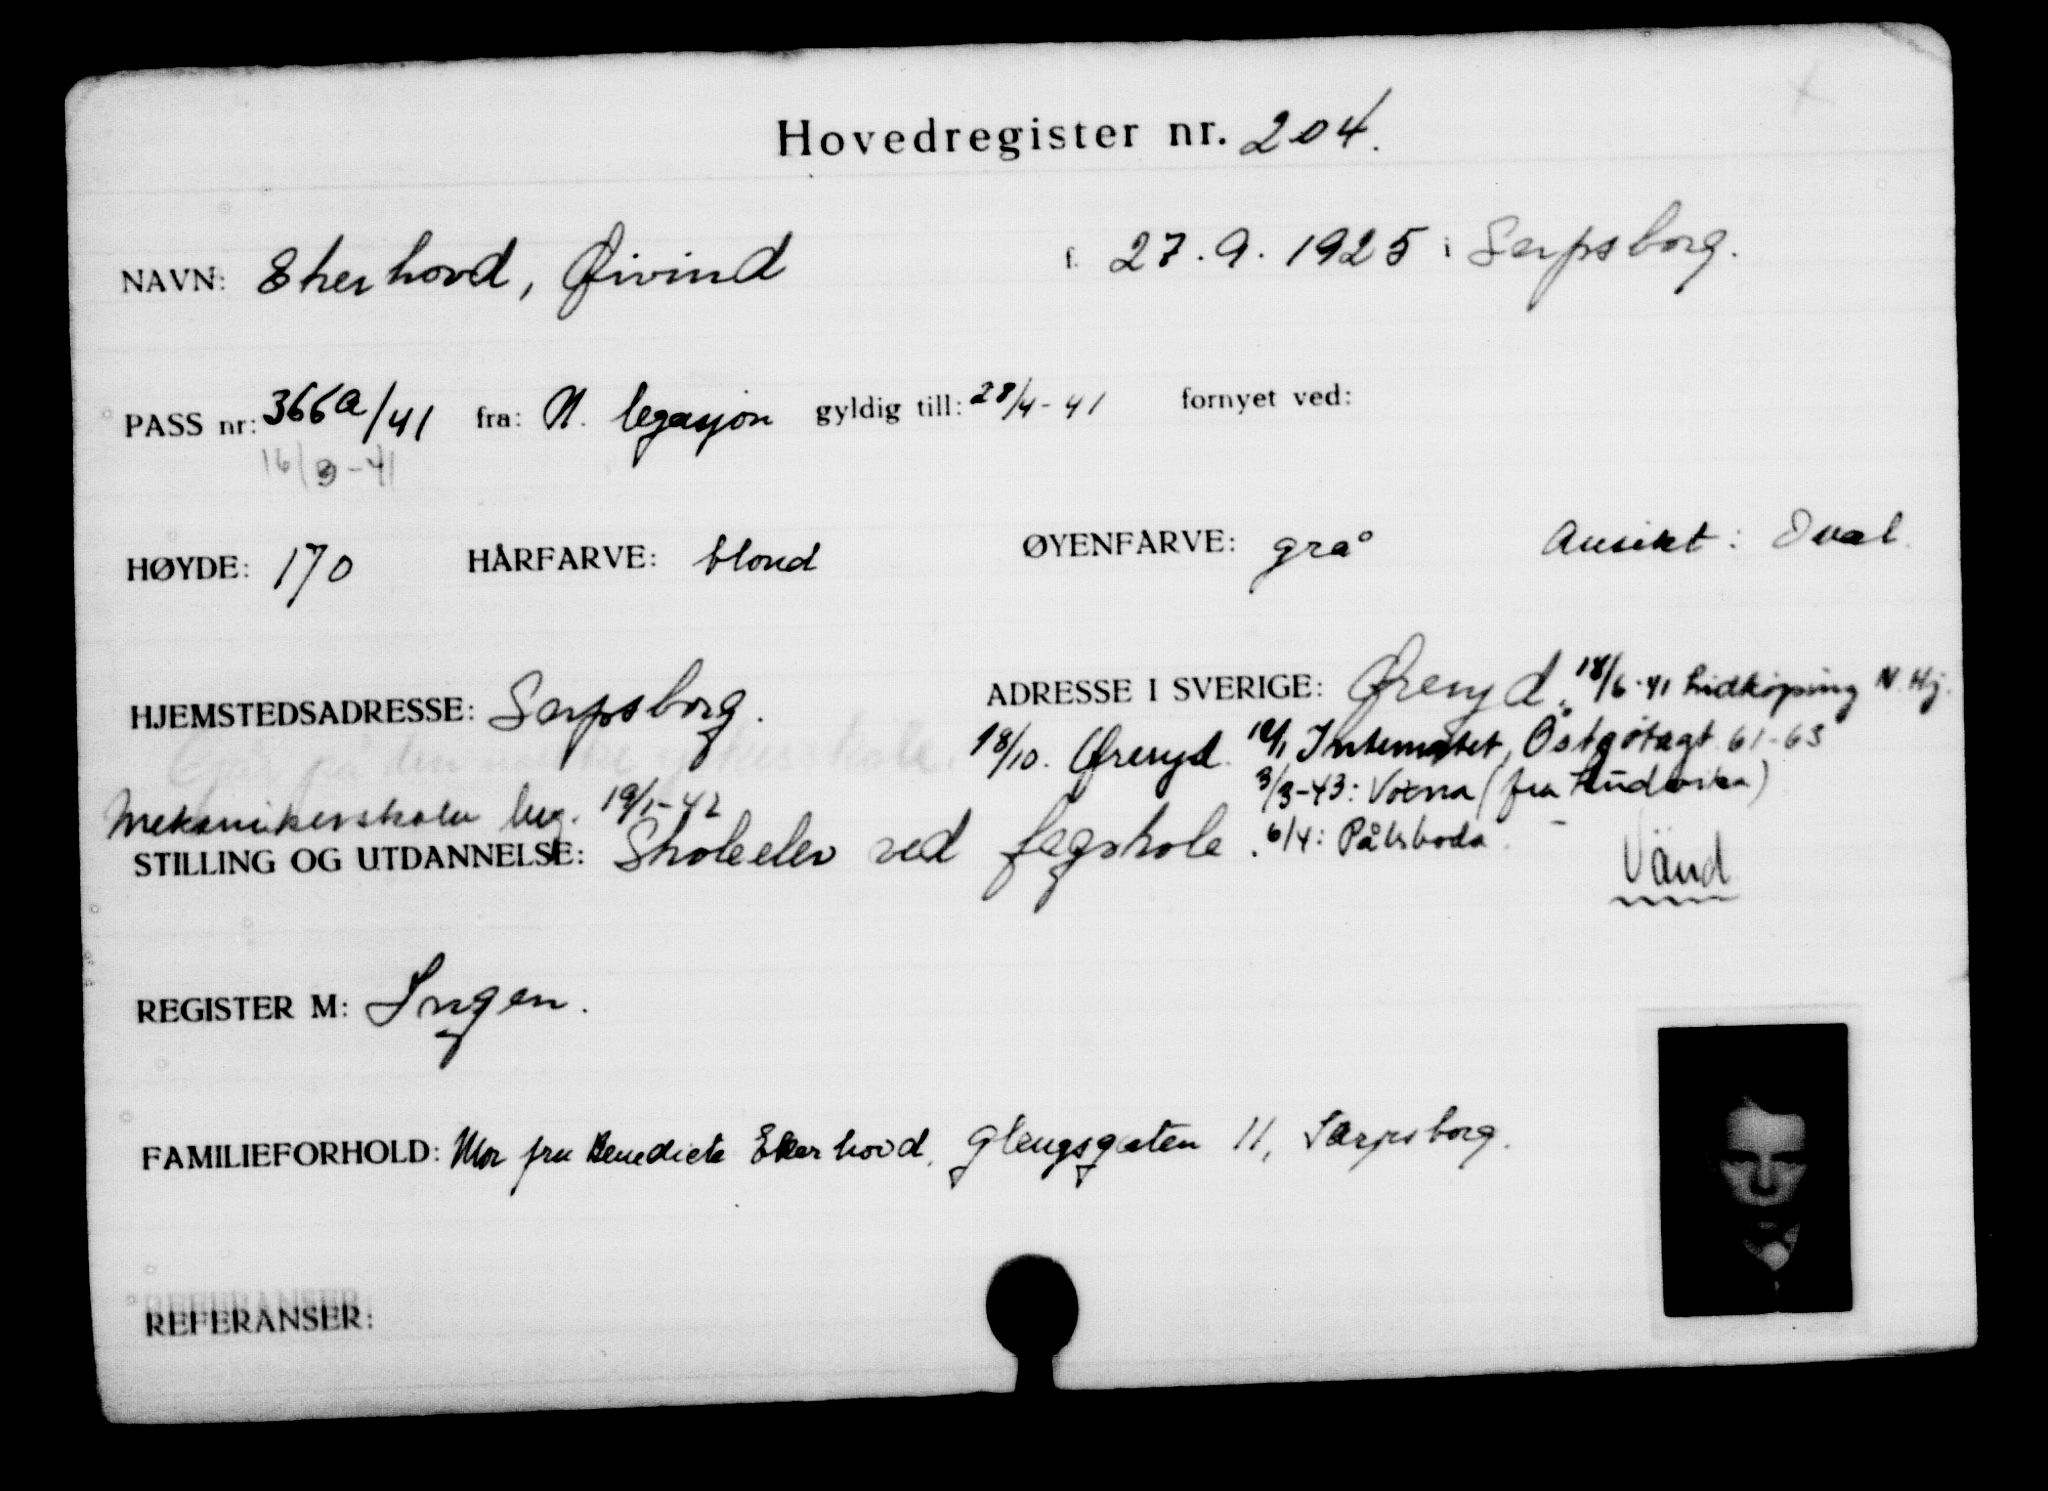 Hovedregister nr. 204.
NAVN: Ekerhovd, Øivind f. 27.9.1925 i Sarpsborg.
PASS nr: 366a/41 fra: N. legasjon gyldig till: 28/4-41 fornyet ved:
16/3-41
HØYDE: 170 HÅRFARVE: blond ØYENFARVE: grå Ansikt: Oval
HJEMSTEDSADRESSE: Sarpsborg. ADRESSE I SVERIGE: Øreryd, 18/6-41 Lidköping N. Hj.
18/10. Øreryd. Internatet, Östgötagt 61-63
3/3-43: Voxna (fra
Mekanikerskolen 19/1-42
STILLING OG UTDANNELSE: Skoleelev ved fagskole. 6/4: Pålsboda.
Vänd
REGISTER M: Ingen.
FAMILIEFORHOLD: Mor fru Benedicte Ekerhovd, Glengsgaten 11, Sarpsborg.
REFERANSER: